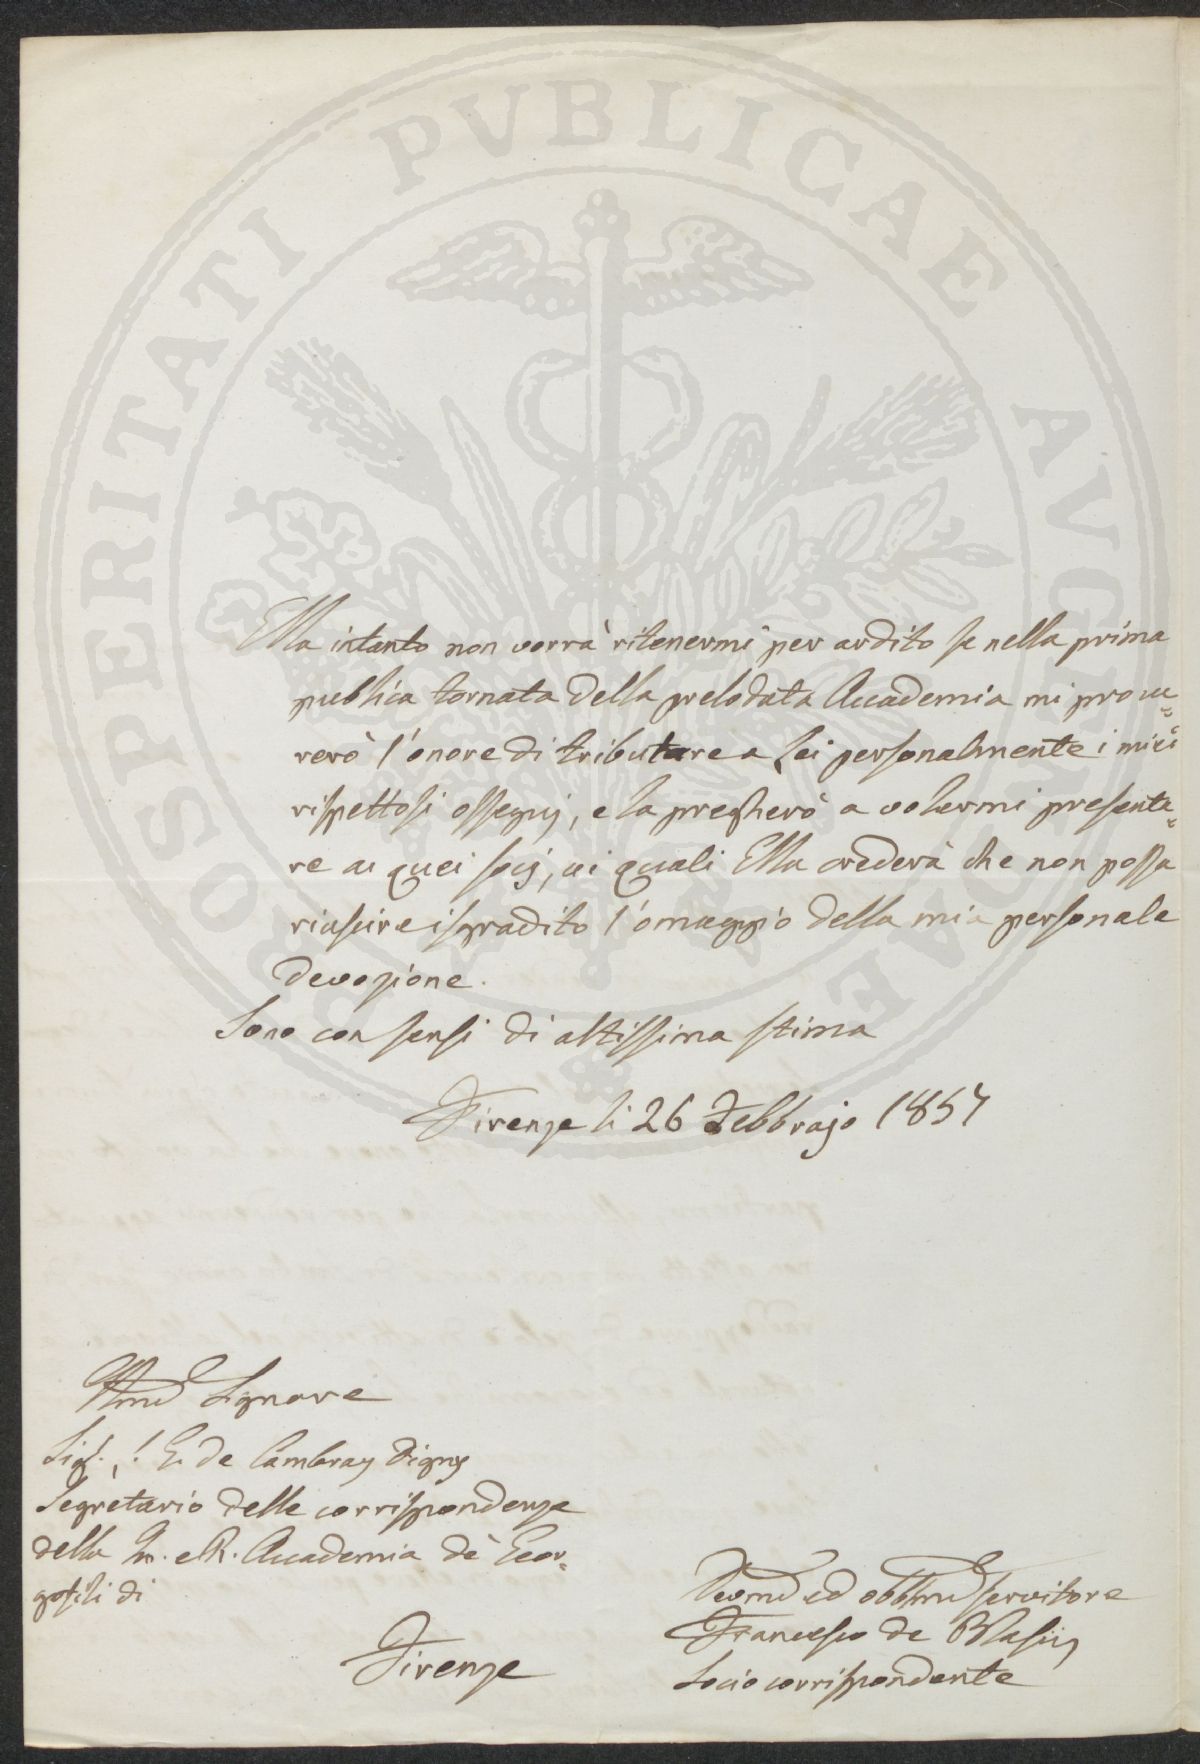 PROSPERITATI PUBLICAE AVGENDAE
Ella intanto non vorrà ritenermi per ardito se nella prima
publica tornata della prelodata Accademia mi procu=
rerò l'onore di tributare a Lei personalmente i miei
rispettosi ossequj, e la pregherò a volermi presenta=
re a quei socj, ai quali Ella crederà che non possa
riuscire isgradito l'omaggio della mia personale
devozione.
Sono con sensi di altissima stima
Firenze li 26 Febbrajo 1857
Illmo Signore
Sigr. E. de Cambray Digny
Segretario delle corrispondenze
della Im. e R. Accademia de' Geor=
gofili di
Firenze
Devmo ed obblmo servitore
Francesco de Blasiis
Socio corrispondente